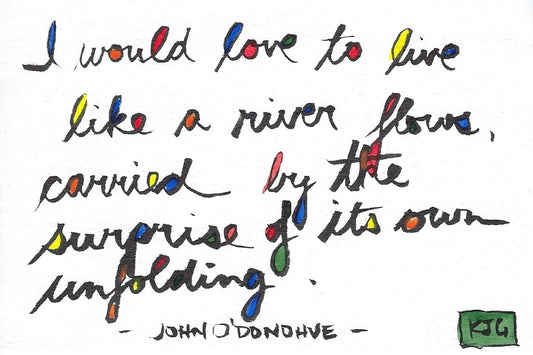 I would love to live
like a river flows,
carried by the
surprise of its own
unfolding.
- JOHN O'DONOHUE -
KJG